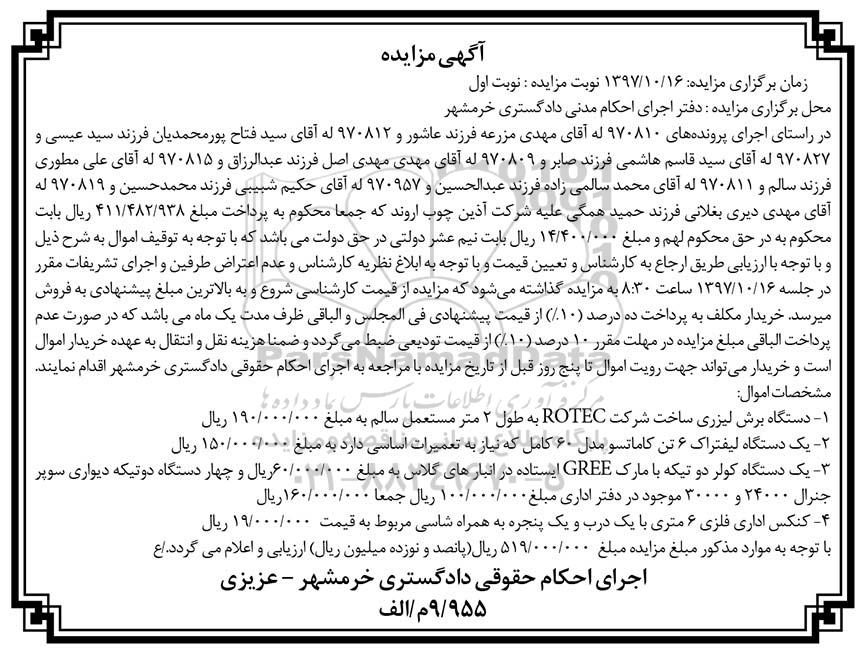 آگهی مزایده
زمان برگزاری مزایده: ۱۳۹۷/۱۰/۱۶ نوبت مزایده : نوبت اول
محل برگزاری مزایده : دفتر اجرای احکام مدنی دادگستری خرمشهر
در راستای اجرای پرونده‌های ۹۷۰۸۱۰ له آقای مهدی مزرعه فرزند عاشور و ۹۷۰۸۱۲ له آقای سید فتاح پورمحمدیان فرزند سید عیسی و
۹۷۰۸۲۷ له آقای سید قاسم هاشمی فرزند صابر و ۹۷۰۸۰۹ له آقای مهدی مهدی اصل فرزند عبدالرزاق و ۹۷۰۸۱۵ له آقای علی مطوری
فرزند سالم و ۹۷۰۸۱۱ له آقای محمد سالمی زاده فرزند عبدالحسین و ۹۷۰۹۵۷ له آقای حکیم شبیبی فرزند محمدحسین و ۹۷۰۸۱۹ له
آقای مهدی دیری بغلانی فرزند حمید همگی علیه شرکت آذین چوب اروند که جمعا محکوم به پرداخت مبلغ ۴۱۱/۴۸۲/۹۳۸ ریال بابت
محکوم به در حق محکوم لهم و مبلغ ۱۴/۴۰۰/۰۰۰ ریال بابت نیم عشر دولتی در حق دولت می باشد که با توجه به توقیف اموال به شرح ذیل
و با توجه با ارزیابی طریق ارجاع به کارشناس و تعیین قیمت و با توجه به ابلاغ نظریه کارشناس و عدم اعتراض طرفین و اجرای تشریفات مقرر
در جلسه ۱۳۹۷/۱۰/۱۶ ساعت ۸:۳۰ به مزایده گذاشته می‌شود که مزایده از قیمت کارشناسی شروع و به بالاترین مبلغ پیشنهادی به فروش
میرسد. خریدار مکلف به پرداخت ده درصد (۱۰٪) از قیمت پیشنهادی فی المجلس و الباقی ظرف مدت یک ماه می باشد که در صورت عدم
پرداخت الباقی مبلغ مزایده در مهلت مقرر ۱۰ درصد (۱۰٪) از قیمت تودیعی ضبط می‌گردد و ضمنا هزینه نقل و انتقال به عهده خریدار اموال
است و خریدار می‌تواند جهت رویت اموال تا پنج روز قبل از تاریخ مزایده با مراجعه به اجرای احکام حقوقی دادگستری خرمشهر اقدام نمایند.
مشخصات اموال:
۱- دستگاه برش لیزری ساخت شرکت ROTEC به طول ۲ متر مستعمل سالم به مبلغ ۱۹۰/۰۰۰/۰۰۰ ریال
۲- یک دستگاه لیفتراک ۶ تن کاماتسو مدل ۶۰ کامل که نیاز به تعمیرات اساسی دارد به مبلغ ۱۵۰/۰۰۰/۰۰۰ ریال
۳- یک دستگاه کولر دو تیکه با مارک GREE ایستاده در انبار های گلاس به مبلغ ۶۰/۰۰۰/۰۰۰ریال و چهار دستگاه دوتیکه دیواری سوپر
جنرال ۲۴۰۰۰ و ۳۰۰۰۰ موجود در دفتر اداری مبلغ ۱۰۰/۰۰۰/۰۰۰ ریال جمعا ۱۶۰/۰۰۰/۰۰۰ریال
۴- کنکس اداری فلزی ۶ متری با یک درب و یک پنجره به همراه شاسی مربوط به قیمت ۱۹/۰۰۰/۰۰۰ ریال
با توجه به موارد مذکور مبلغ مزایده مبلغ ۵۱۹/۰۰۰/۰۰۰ ریال(پانصد و نوزده میلیون ریال) ارزیابی و اعلام می گردد./ع
اجرای احکام حقوقی دادگستری خرمشهر - عزیزی
۹/۹۵۵م/الف
ParsNamadData